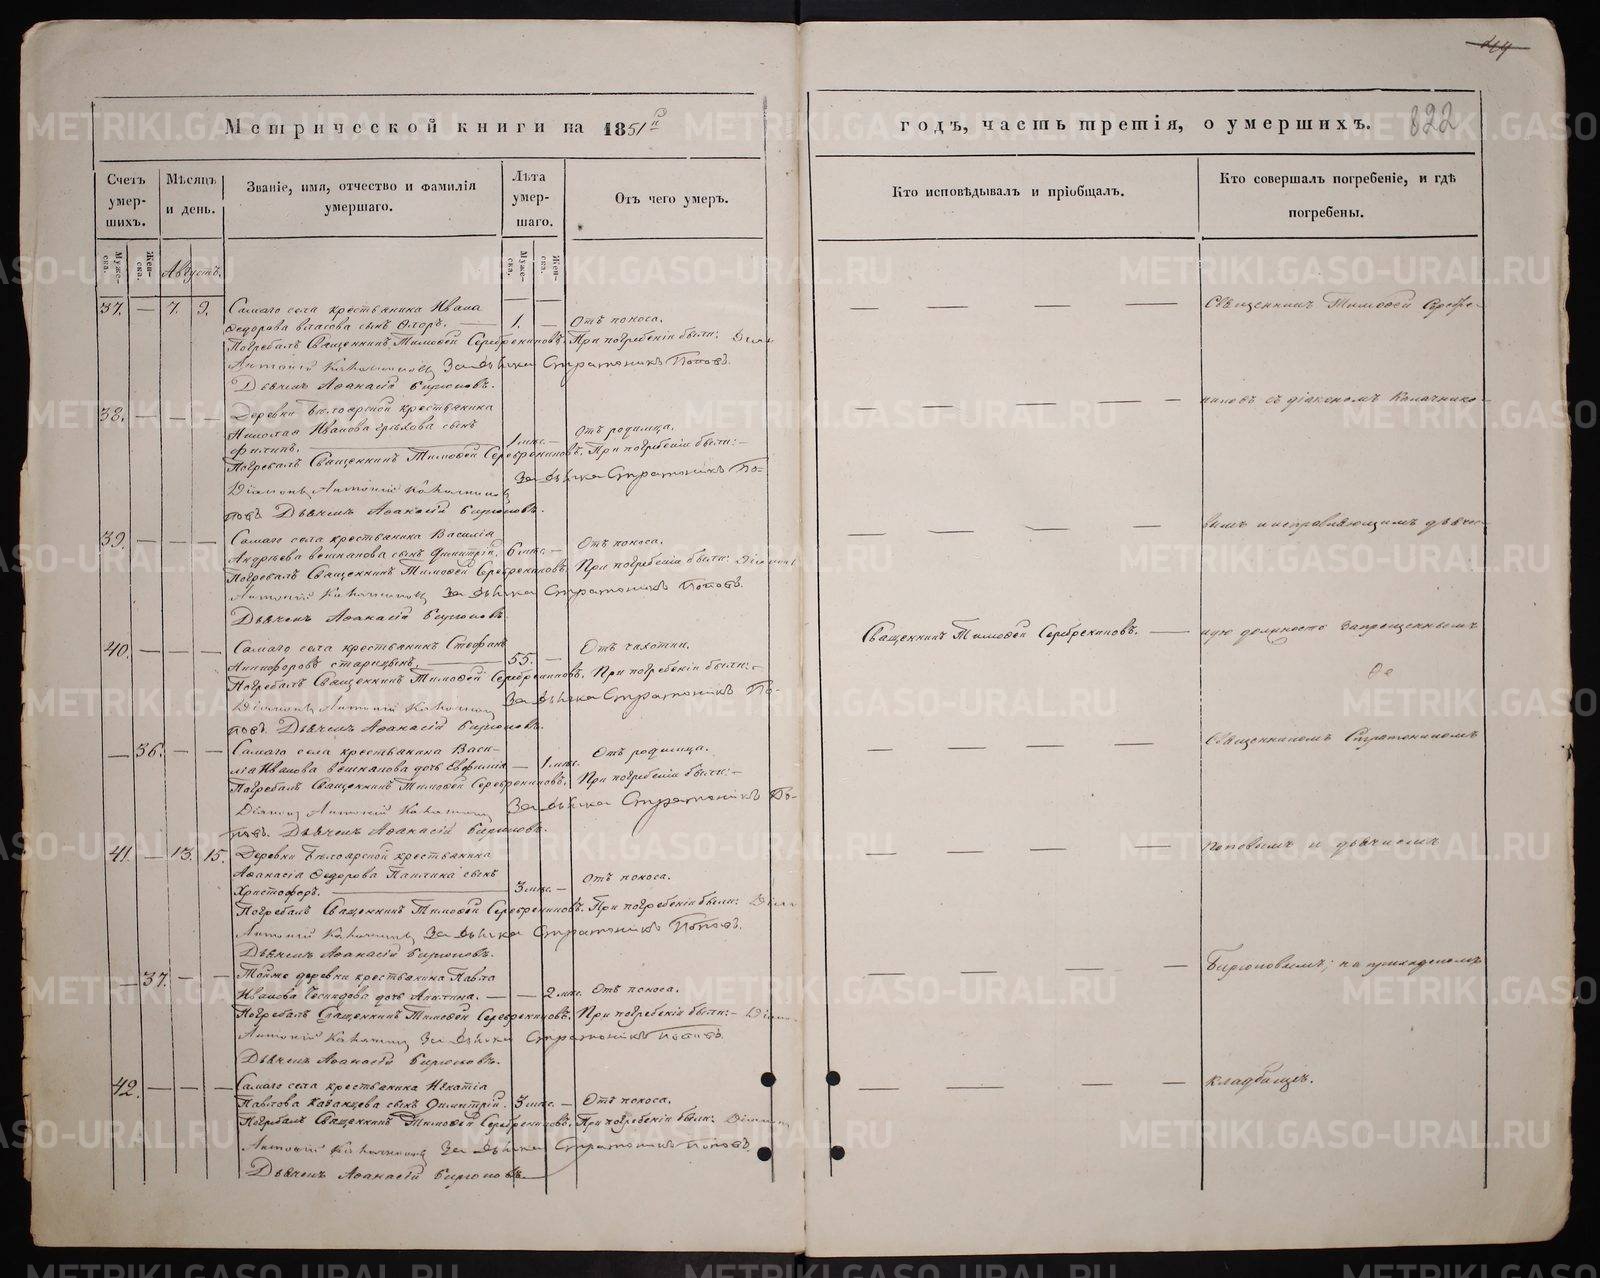 Метрической книги на 1851й
годъ, часть третія, о умершихъ.
822
Счетъ умер-
шихъ.
Мѣсяцъ
и день.
Званіе, имя, отчество и фамилія
умершаго.
Лѣта
умер-
шаго.
Отъ чего умеръ.
Кто исповѣдывалъ и пріобщалъ.
Кто совершалъ погребеніе, и гдѣ
погребены.
Муже-
ска.
Жен-
ска.
Августъ.
Муже-
ска.
Жен-
ска.
37. — 7. 9. Самаго села крестьянина Ивана
Ѳедорова Власова сынъ Флоръ. — 1. — Отъ поноса.
Погребалъ Священникъ Тимоѳей Серебренниковъ. При погребеніи были:
Антоній За дьячка Стратоникъ Поповъ.
Дьячекъ Аѳанасій Бирюковъ.
38. — — — Деревни Бѣлоярской крестьянина
Николая Иванова сынъ
Филипъ. 1 мѣс. — Отъ родимца.
Погребалъ Священникъ Тимоѳей Серебренниковъ. При погребеніи были: —
Діаконъ Антоній За дьячка Стратоникъ По-
повъ Дьячекъ Аѳанасій Бирюковъ.
39. — — — Самаго села крестьянина Василія
Андреева Вешканова сынъ Димитрій. 6 мѣс. — Отъ поноса.
Погребалъ Священникъ Тимоѳей Серебренниковъ. При погребеніи были: Діаконъ
Антоній За дьячка Стратоникъ Поповъ.
Дьячекъ Аѳанасій Бирюковъ.
40. — — — Самаго села крестьянинъ Стефанъ
Никифоровъ Старицынъ. — 55. — Отъ чахотки.
Погребалъ Священникъ Тимоѳей Серебренниковъ. При погребеніи были: —
Діаконъ Антоній За дьячка Стратоникъ По-
повъ. Дьячекъ Аѳанасій Бирюковъ.
— 36. — — Самаго села крестьянина Васи-
лія Иванова Вешканова дочь Евфимія — 1 мѣс. Отъ родимца.
Погребалъ Священникъ Тимоѳей Серебренниковъ. При погребеніи были: —
Діаконъ Антоній За дьячка Стратоникъ По-
повъ. Дьячекъ Аѳанасій Бирюковъ.
41. — 13. 15. Деревни Бѣлоярской крестьянина
Аѳанасія Ѳедорова сынъ
Христофоръ. — 3 мѣс. — Отъ поноса.
Погребалъ Священникъ Тимоѳей Серебренниковъ. При погребеніи были:
Антоній За дьячка Стратоникъ Поповъ.
Дьячекъ Аѳанасій Бирюковъ.
— 37. — — Тойже деревни крестьянина Павла
Иванова дочь — — 2 мѣс. Отъ поноса.
Погребалъ Священникъ Тимоѳей Серебренниковъ. При погребеніи были: —
Антоній За дьячка Стратоникъ Поповъ.
Дьячекъ Аѳанасій Бирюковъ.
42. — — — Самаго села крестьянина Игнатія
Павлова Казанцева сынъ Димитрій. 3 мѣс. — Отъ поноса.
Погребалъ Священникъ Тимоѳей Серебренниковъ. При погребеніи были: Діаконъ
Антоній За дьячка Стратоникъ Поповъ.
Дьячекъ Аѳанасій Бирюковъ.
Священникъ Тимоѳей Серебренниковъ. —
Священникъ Тимоѳей Серебре-
никовъ съ діакономъ Калачнико-
вымъ и исправляющимъ дьячес-
кую должность запрещеннымъ
Священникомъ Стратоникомъ
Поповымъ и дьячкомъ
Бирюковымъ; на приходскомъ
кладбищѣ.
METRIKI.GASO-URAL.RU